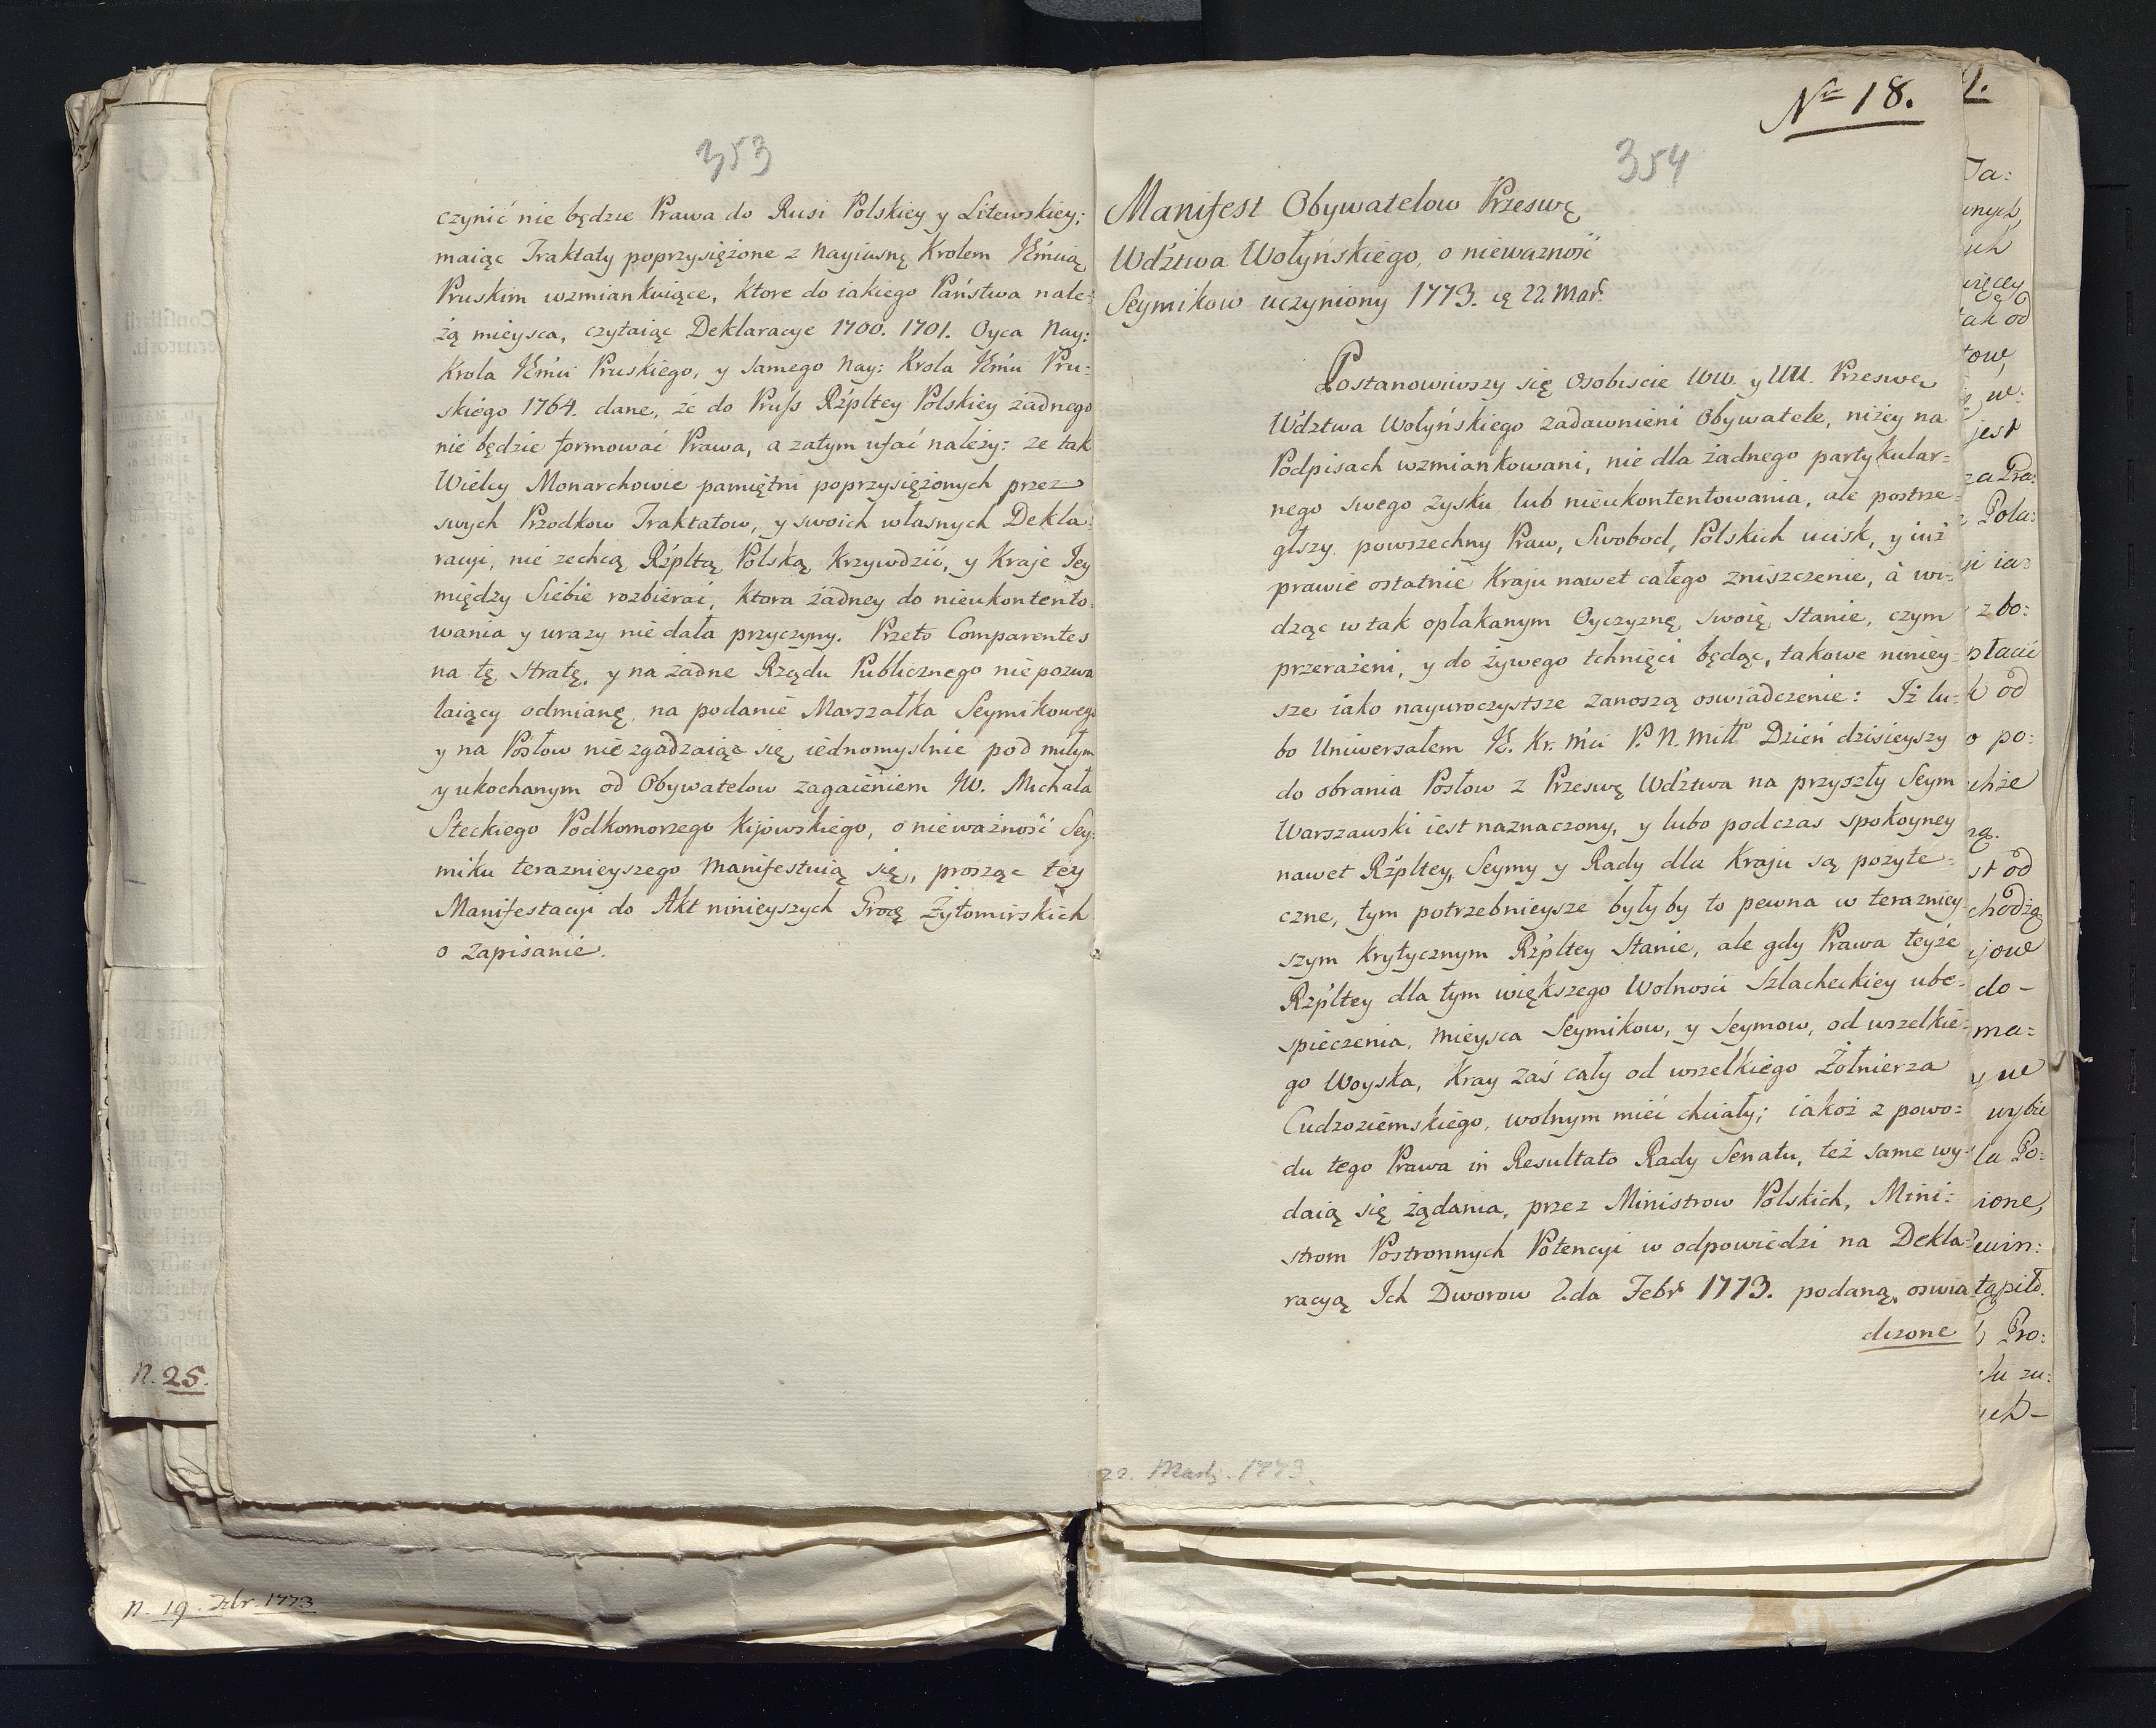 353
czynić nie będzie Prawa do Rusi Polskiey y Litewskiey;
maiąc Traktaty poprzysiężone z Nayiasnę Krolem JEmcią
Pruskim wzmiankuiące, ktore do iakiego Państwa nale:
żą mieysca, czytaiąc Deklaracye 1700. 1701. Oyca Nay:
Krola JEmci Pruskiego, y samego Nay: Krola JEmci Pru:
skiego 1764. dane, że do Pruss Rżpltey Polskiey żadnego
nie będzie formować Prawa, a zatym ufać należy: ze tak
Wielcy Monarchowie pamiętni poprzysiężonych przez
swych Przodkow Traktatow, y swoich własnych Dekla:
racyi, nie zechcą Rżpltą Polską Krzywdzić, y Kraje Jey
między Siebie rozbierać, ktora żadney do nieukontento:
wania y urazy nie dała przyczyny. Przeto Comparentes
na tę stratę, y na żadne Rządu Publicznego nie pozwa
laiący odmianę, na podanie Marszałka Seymikowego
y na Posłow nie zgadzaiąc się iednomyslnie pod miłym
y ukochanym od Obywatelow zagaieniem W. Michała
Steckiego Podkomorzego Kijowskiego, o nieważność Sey:
miku teraznieyszego manifestuią się, prosząc tey
Manifestacyi do Akt ninieyszych Grodz Żytomirskich
o zapisanie.
N. 25.
N. 19. Febr. 1773
No 18.
354
Manifest Obywatelow Przeswę
Wdztwa Wołyńskiego, o nieważność
Seymikow uczyniony 1773. ię 22 Mar.
Postanowiwszy się Osobiscie WW. y UU. Przeswę
Wdztwa Wołyńskiego zadawnieni Obywatele, niżey na
Podpisach wzmiankowani, nie dla żadnego partykular:
nego swego zysku lub nieukontentowania, ale postrze:
głszy powszechny Praw, Swobod, Polskich ucisk, y iuż
prawie ostatnie Kraju nawet całego zniszczenie, à wi:
dząc w tak opłakanym Oyczyznę swoię stanie, czym
przerażeni, y do żywego tchnięci będąc, takowe niniey:
sze iako nayuroczystsze zanoszą oswiadczenie: Iż lu:
bo Uniwersałem K. Kr. Mci P. N. Mitto Dzień dzisieyszy
do obrania Posłow z Przeswę Wdztwa na przyszły Seym
Warszawski iest naznaczony, y lubo podczas spokoyney
nawet Rżpltey, Seymy y Rady dla Kraju są pożyte:
czne, tym potrzebnieysze byłyby to pewna w terazniey
szym krytycznym Rżpltey Stanie, ale gdy Prawa teyże
Rzpltey dla tym większego Wolnosci Szlacheckiey ube:
spieczenia, mieysca Seymikow, y Seymow, od wszelkie:
go Woyska, Kray zaś cały od wszelkiego Żołnierza
Cudzoziemskiego, wolnym mieć chciały; iakoż z powo:
du tego Prawa in Resultato Rady Senatu, też same wy:
daią się żądania, przez Ministrow Polskich, Mini:
strom Postronnych Potencyi w odpowiedzi na Dekla:
racyą Ich Dworow 2da Febr 1773. podaną, oswia
dczone
22. Martij. 1773.